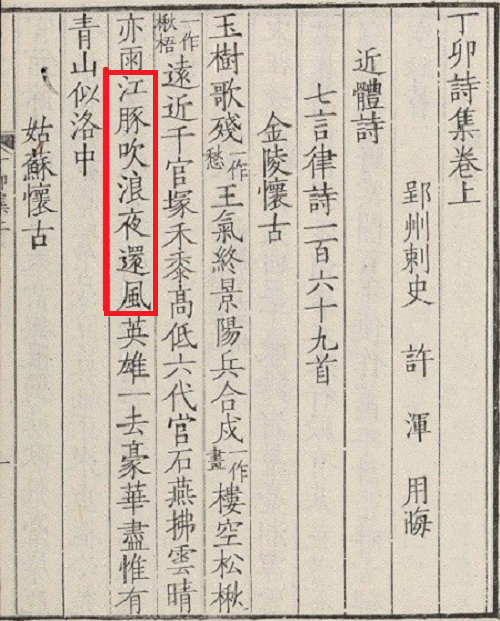 丁卯詩集卷上
郢州刺史 許渾 用晦
近體詩
七言律詩一百六十九首
金陵懷古
玉樹歌殘一作愁王氣終景陽兵合戍一作畫樓空松楸
一作楸梧遠近千官塚禾黍高低六代官石燕拂雲晴
亦雨江豚吹浪夜還風英雄一去豪華盡惟有
青山似洛中
姑蘇懷古